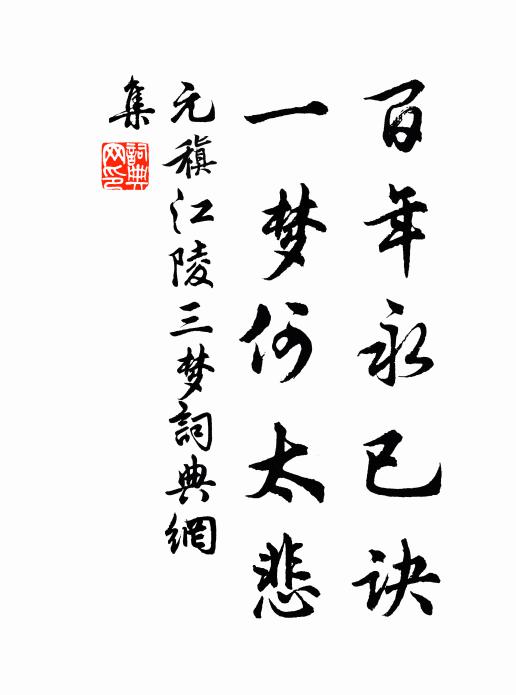 百年永已诀
一梦何太悲
元稹江陵三梦詞典網
集
詞典网印